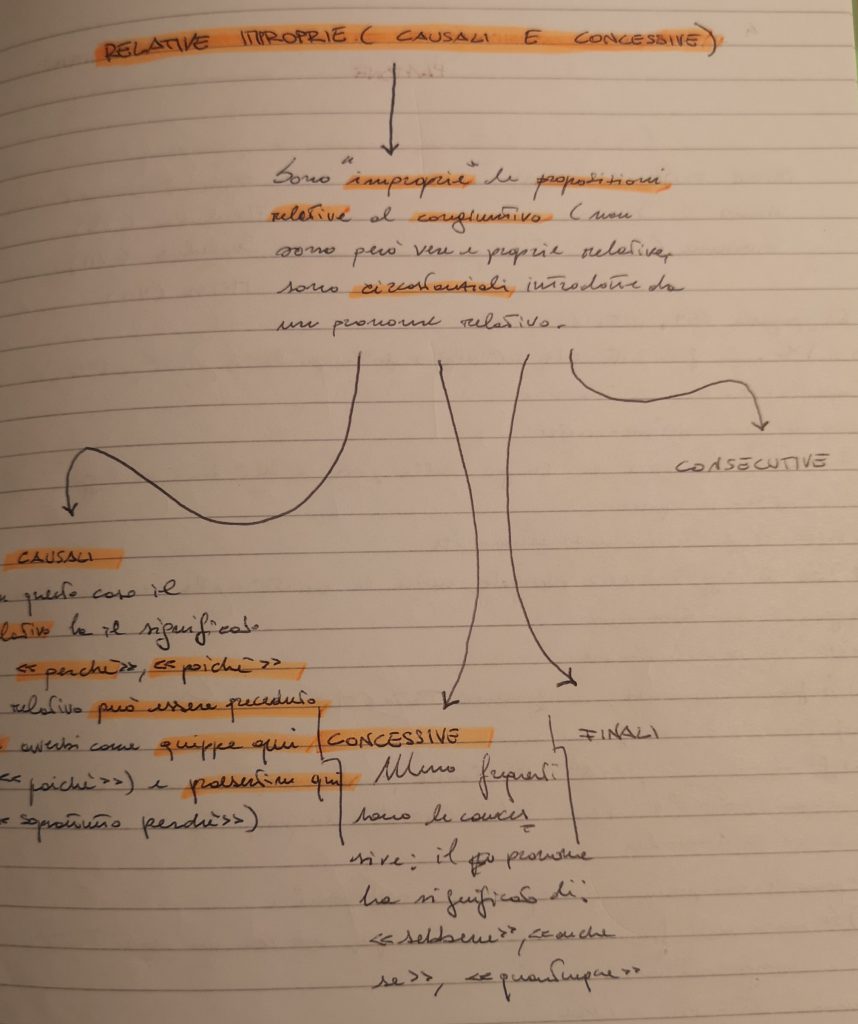 RELATIVE IMPROPRIE ( CAUSALI E CONCESSIVE )
Sono "improprie" le proposizioni
relative al congiuntivo ( non
sono però vere e proprie relative,
sono circostanziali introdotte da
un pronome relativo.
CONSECUTIVE
CAUSALI
questo caso il
lativo ha il significato
<<perché>>, <<poiché>>
relativo può essere preceduto
avverbi come quippe qui
<< poiché>>) e praesertim qui
< soprattutto perché>>)
CONCESSIVE
Meno frequenti
sono le conces
sive: il pronome
ha significato di:
<<sebbene>>, <<anche
se>>, <<quantunque>>
FINALI